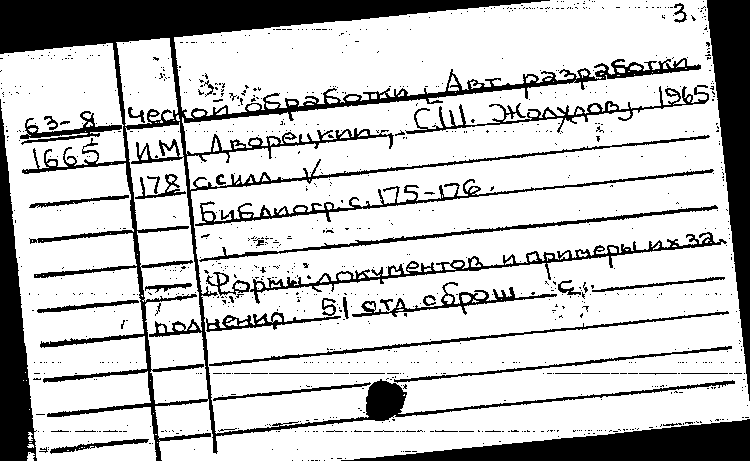 3.
63-8 ческой обработки. Авт. разработки
1665 И.М. Дворецкий, С.Ш. Жолудов. 1965
178 с. илл. √
Библиогр: с. 175-176.
— Формы документов и примеры их за-
полнения. 51 отд. оброш. с.